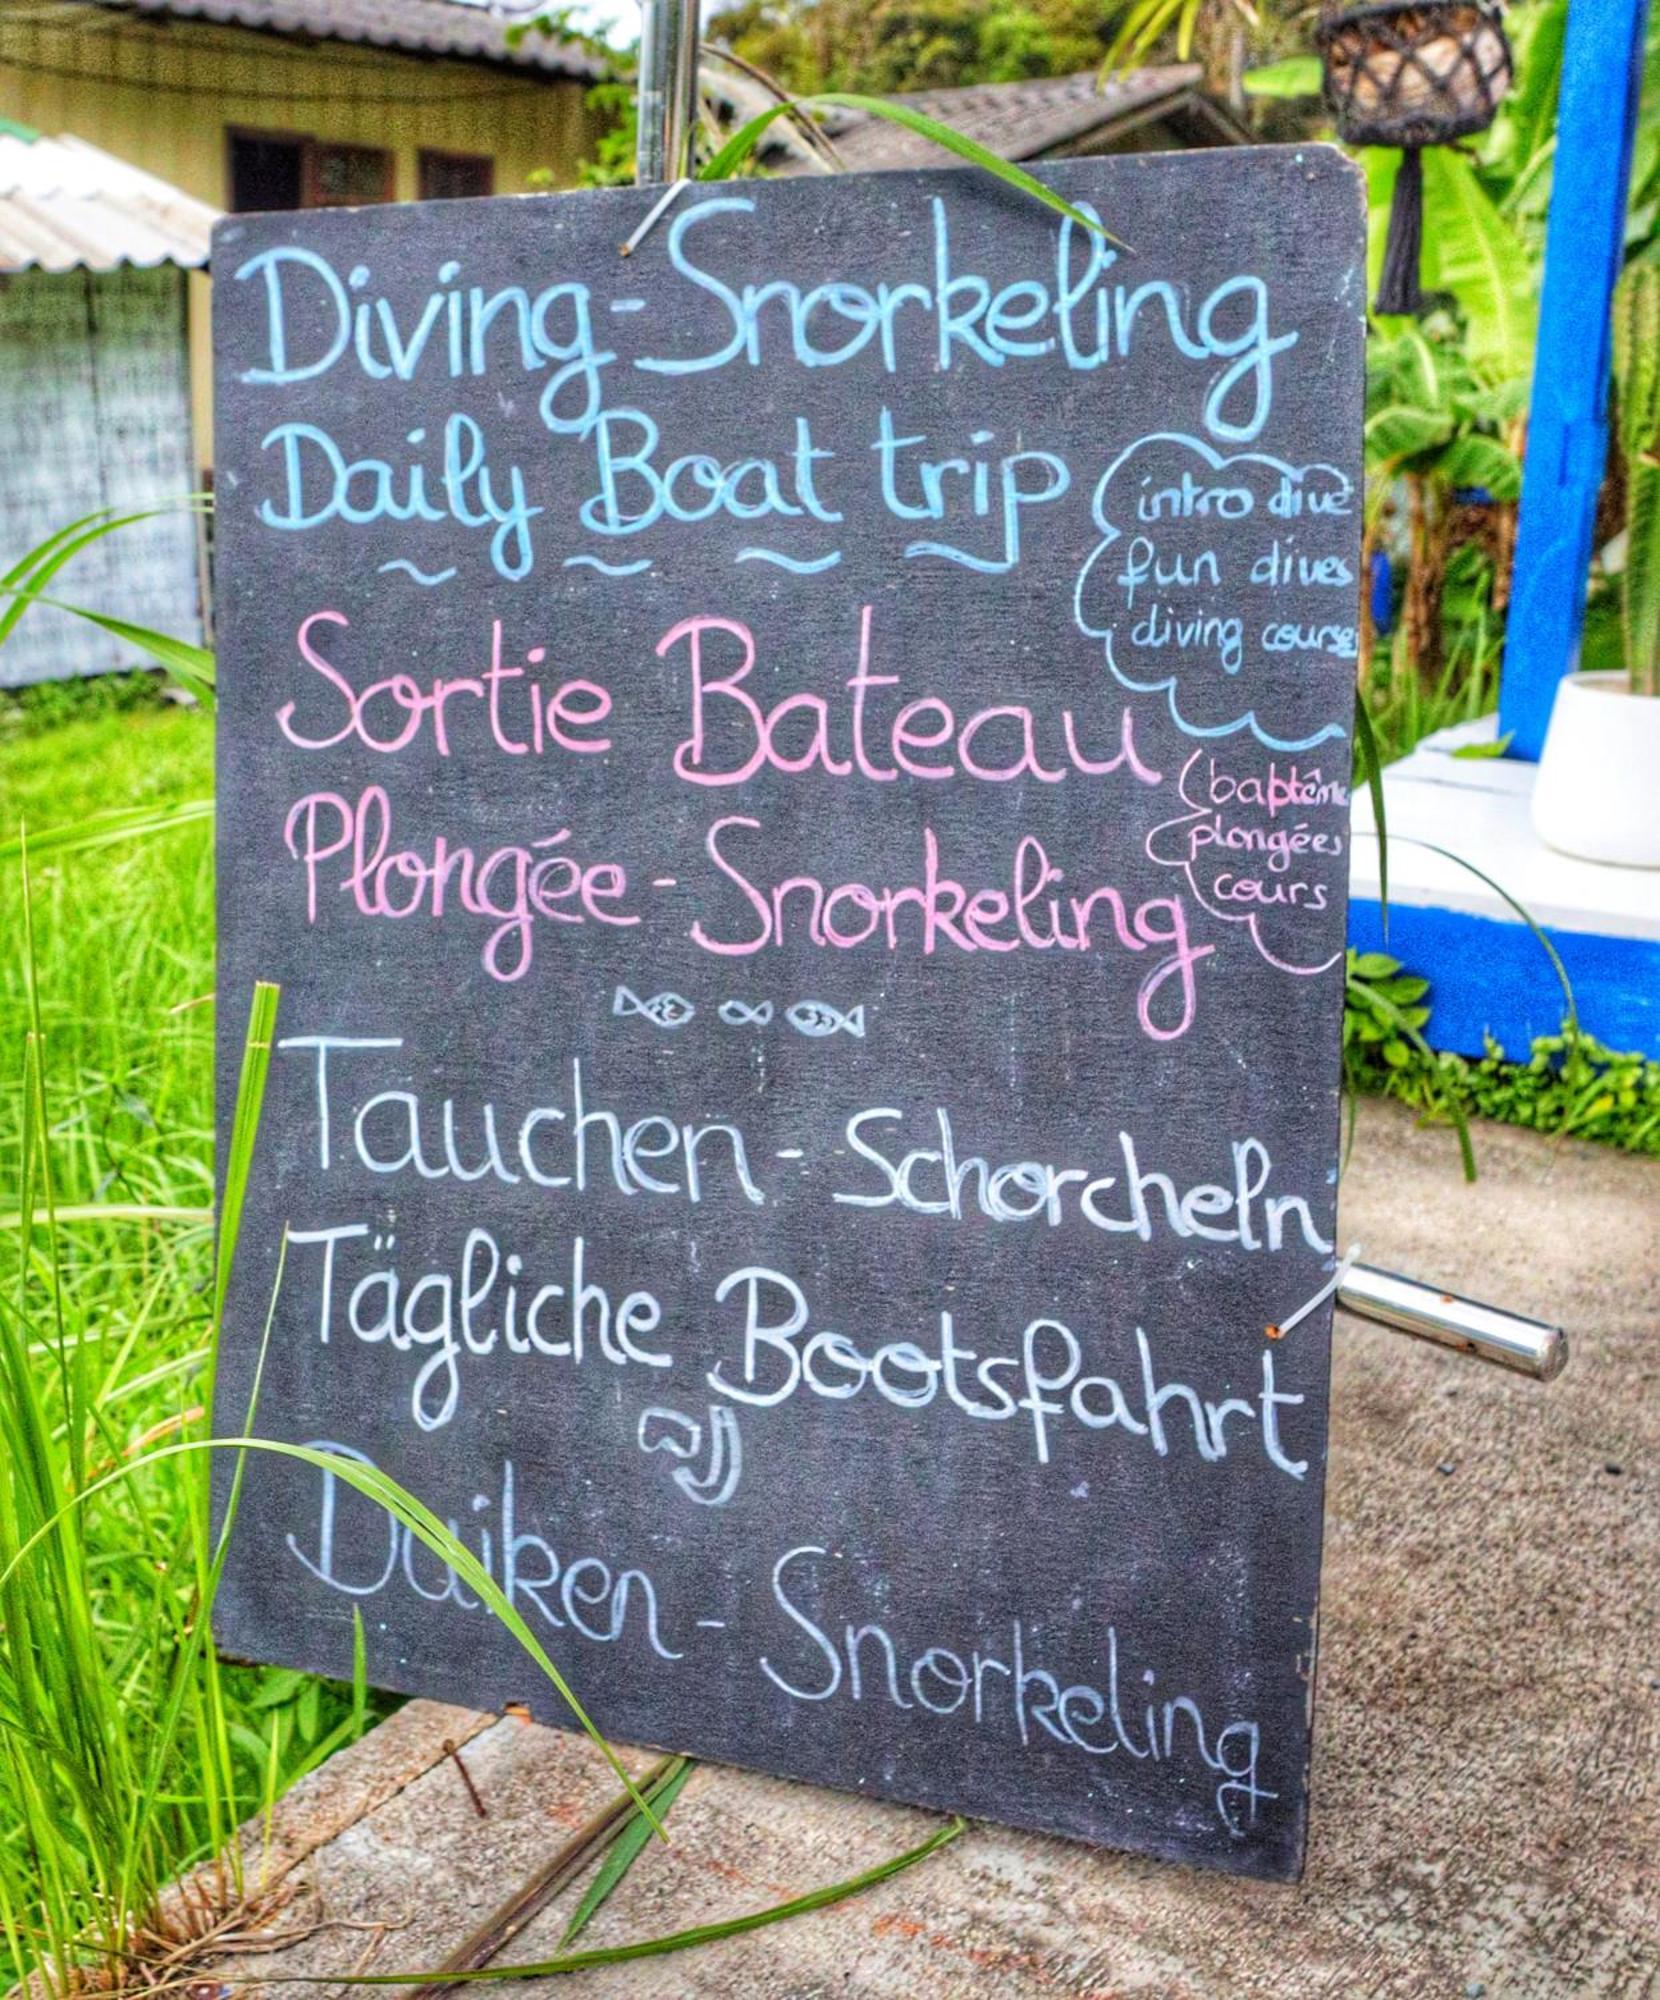 Diving-Snorkeling
Daily Boat trip
intro dive
fun dives
diving courses
Sortie Bateau
Plongée-Snorkeling
baptême
plongées
cours
Tauchen-Schorcheln
Tägliche Bootsfahrt
Duiken-Snorkeling